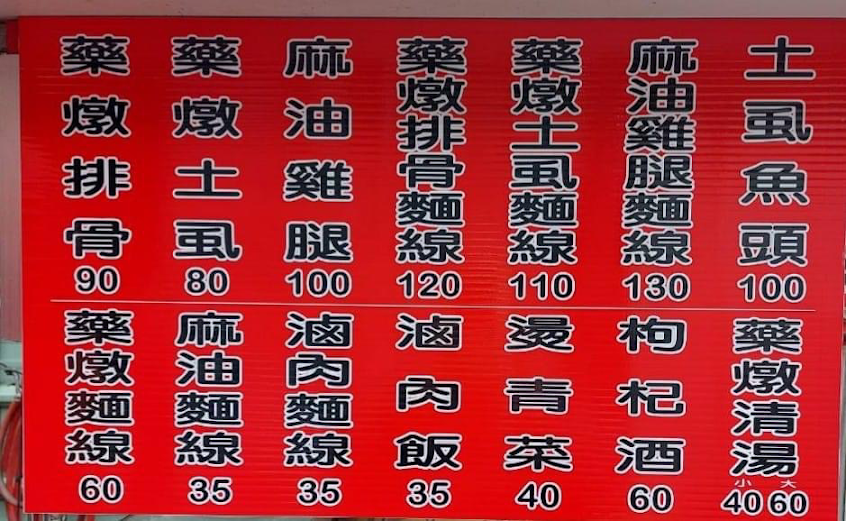 藥燉排骨
90
藥燉土虱
80
麻油雞腿
100
藥燉排骨麵線
120
藥燉土虱麵線
110
麻油雞腿麵線
130
土虱魚頭
100
藥燉麵線
60
麻油麵線
35
滷肉麵線
35
滷肉飯
35
燙青菜
40
枸杞酒
60
藥燉清湯
小 大
40 60